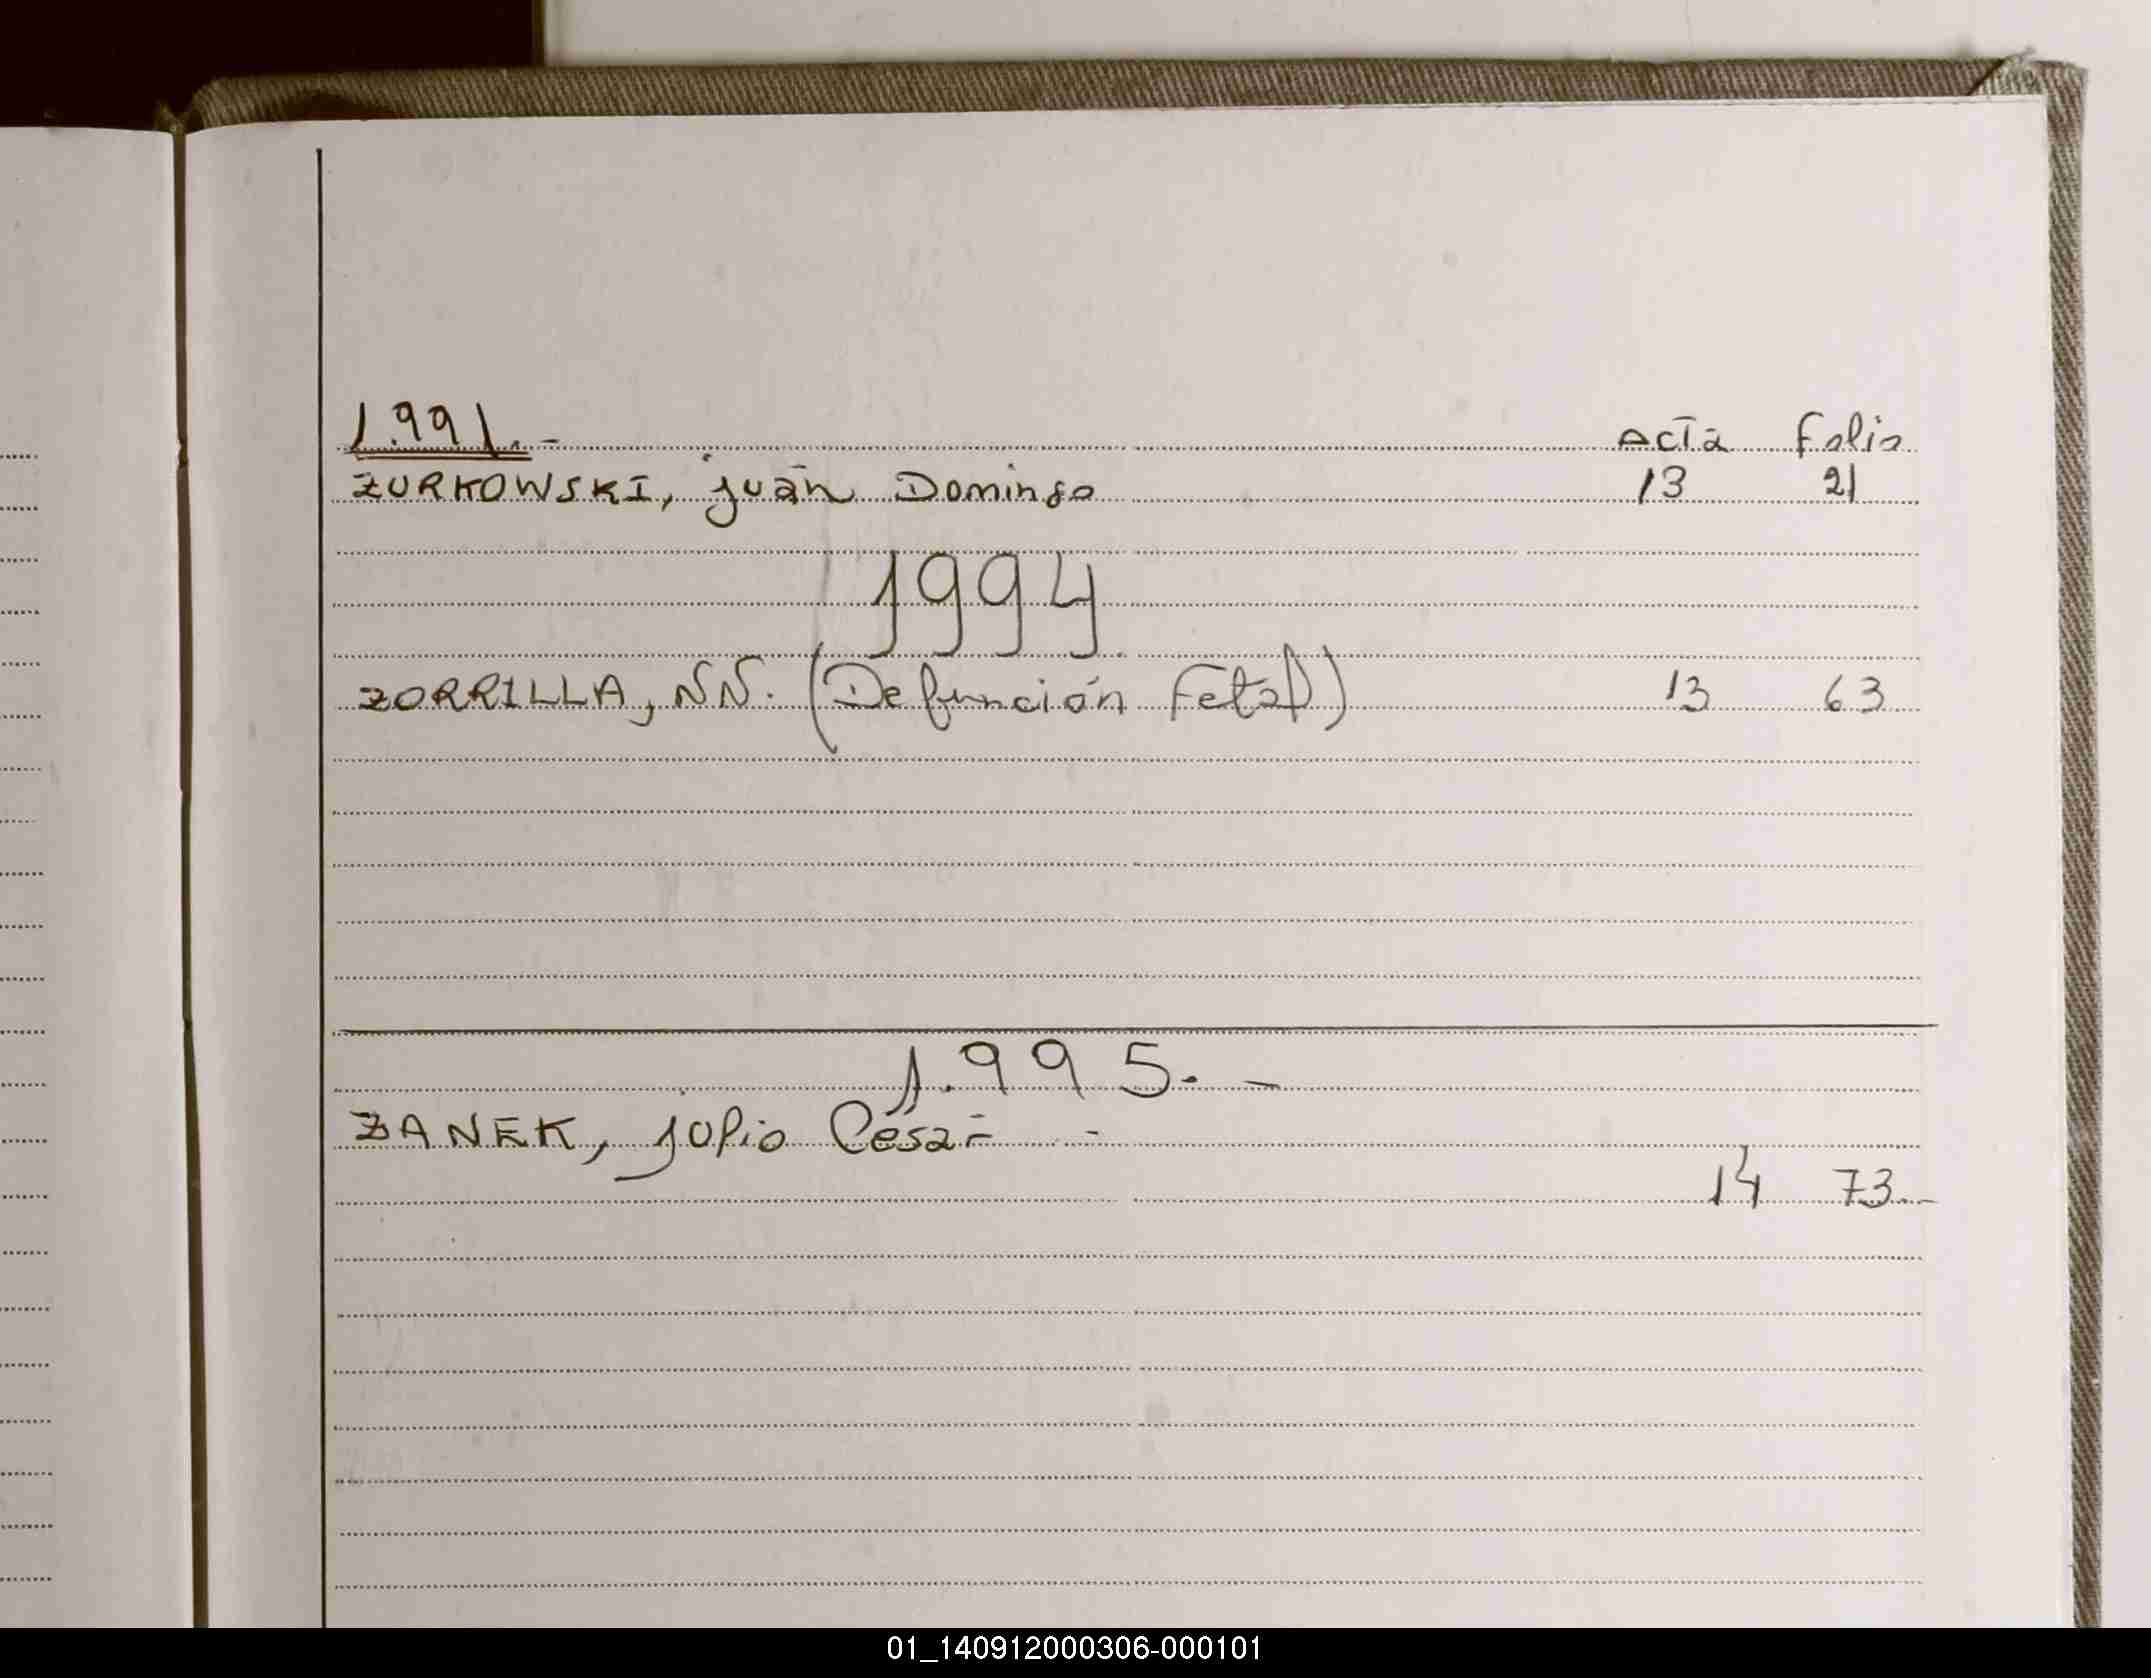 1.991.- Acta Folio
ZURKOWSKI, juan Domingo 13 21
1994.
ZORRILLA, NN. (Defunción Fetal) 13 63
1.995.-
ZANEK, julio Cesar -
14 73.-
01_140912000306-000101